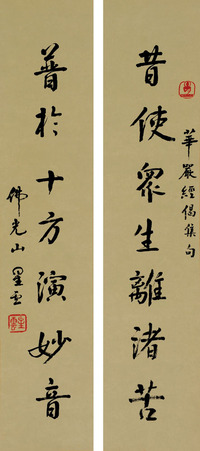 華嚴經偈集句
皆使眾生離諸苦
普於十方演妙音
佛光山 星雲